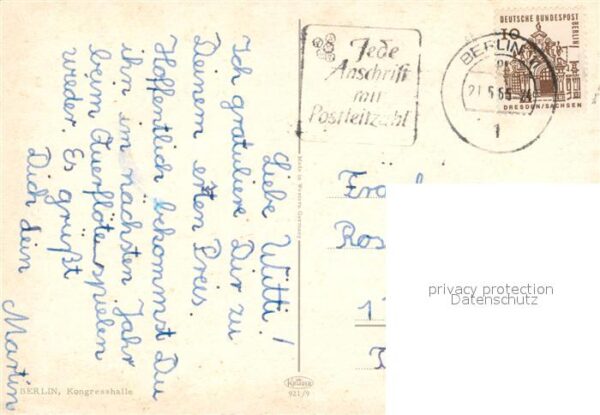 Liebe Witti!
Ich gratuliere Dir zu
Deinem ersten Preis.
Hoffentlich bekommst Du
ihn im nächsten Jahr
beim Querflötenspielen
wieder. Es grüßt
Dich dein
Martin
BERLIN, Kongresshalle
Made in Western Germany
Krüger
921/9
Jede
Anschrift
mit
Postleitzahl
BERLIN
1
DEUTSCHE BUNDESPOST
BERLIN
DRESDEN/SACHSEN
privacy protection
Datenschutz